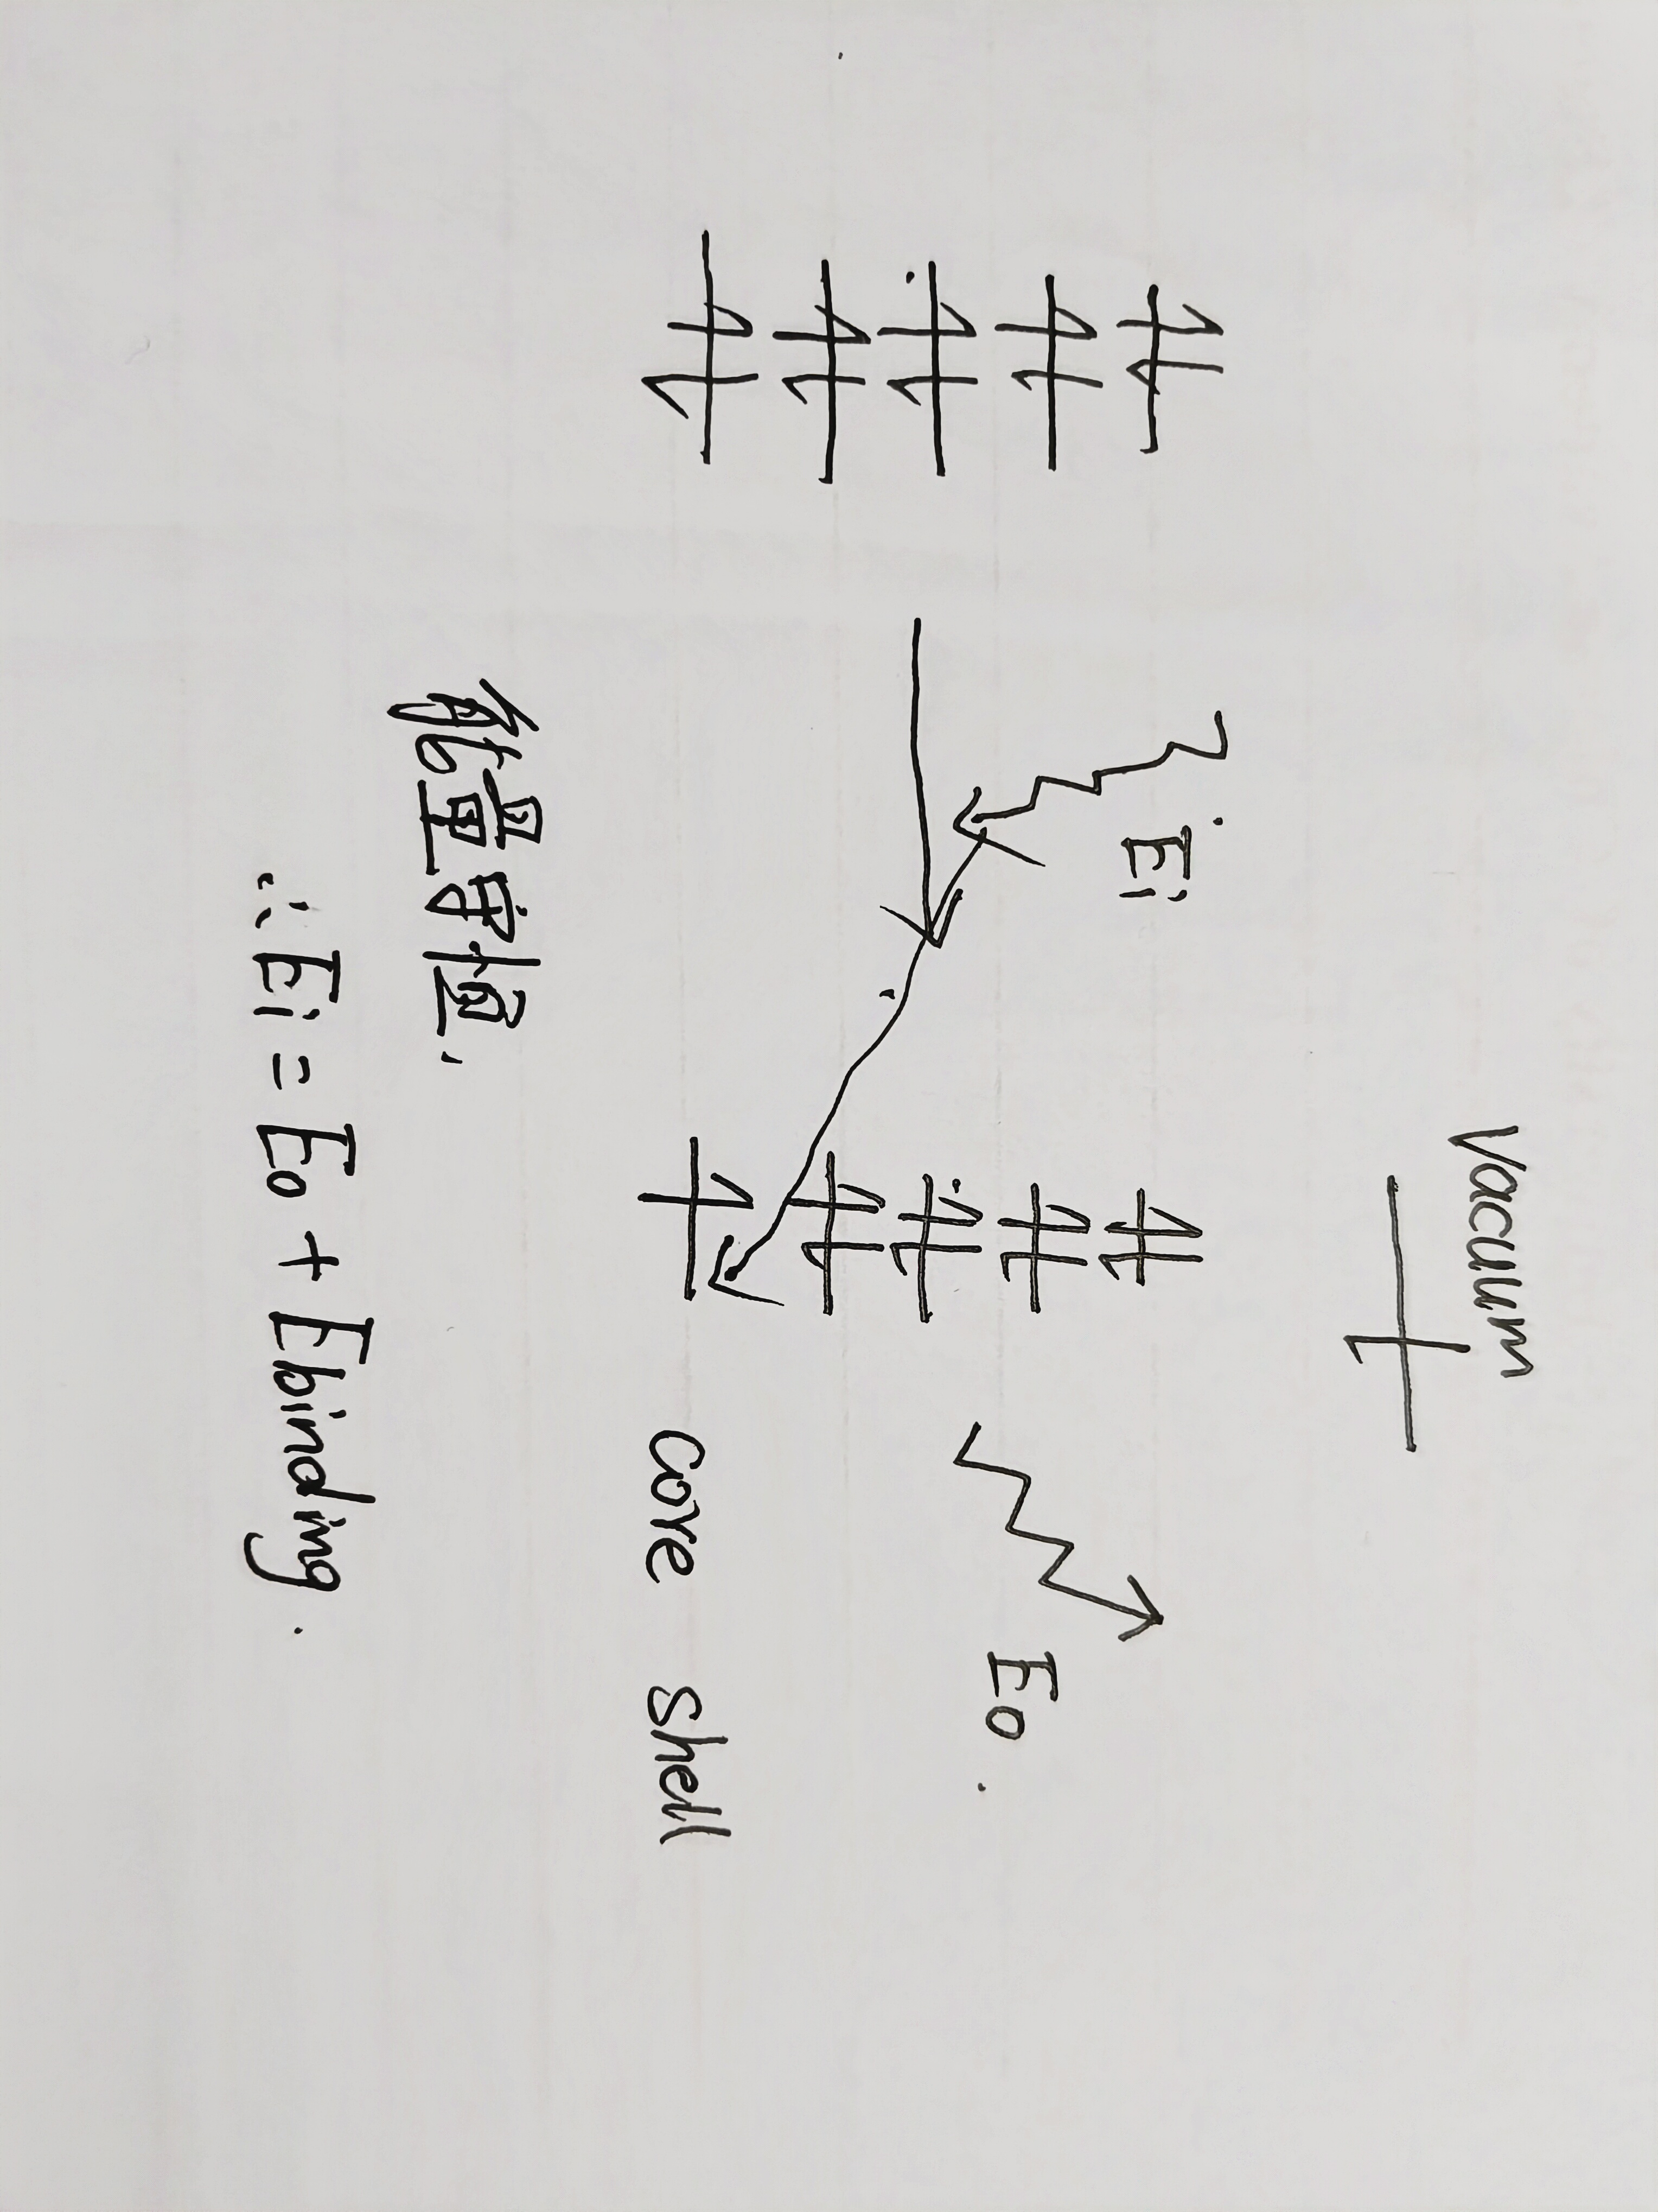 Vacuum
Ei
Eo.
core shell
能量守恒,
∴Ei = Eo + Ebinding.